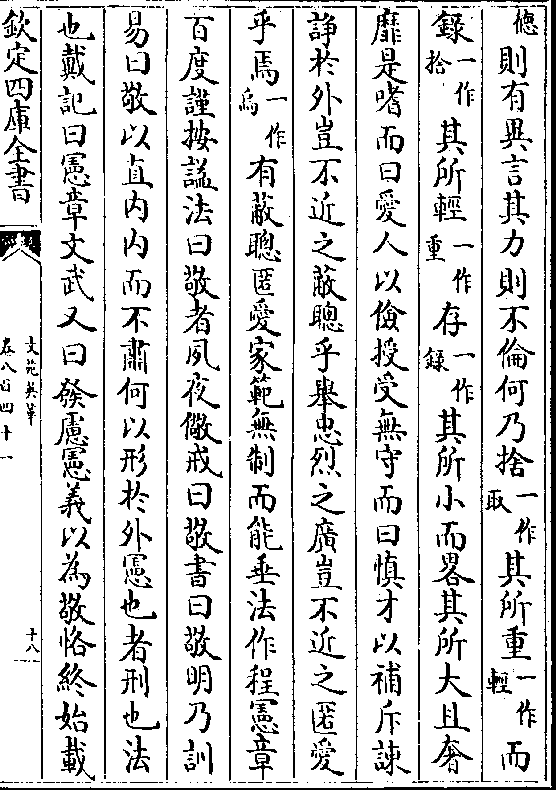 德則有異言其力則不倫何乃捨一作取其所重一作輕而
錄一作捨其所輕一作重存一作錄其所小而畧其所大且奢
靡是嗜而曰愛人以儉授受無守而曰慎才以補斥諫
諍於外豈不近之蔽聰乎舉忠烈之廣豈不近之匿愛
乎焉一作為有蔽聰匿愛家範無制而能垂法作程憲章
百度謹按諡法曰敬者夙夜儆戒曰敬書曰敬明乃訓
易曰敬以直内内而不肅何以形於外憲也者刑也法
也戴記曰憲章文武又曰發慮憲義以為敬恪終始載
欽定四庫全書
文苑英華
卷八百四十一
十八